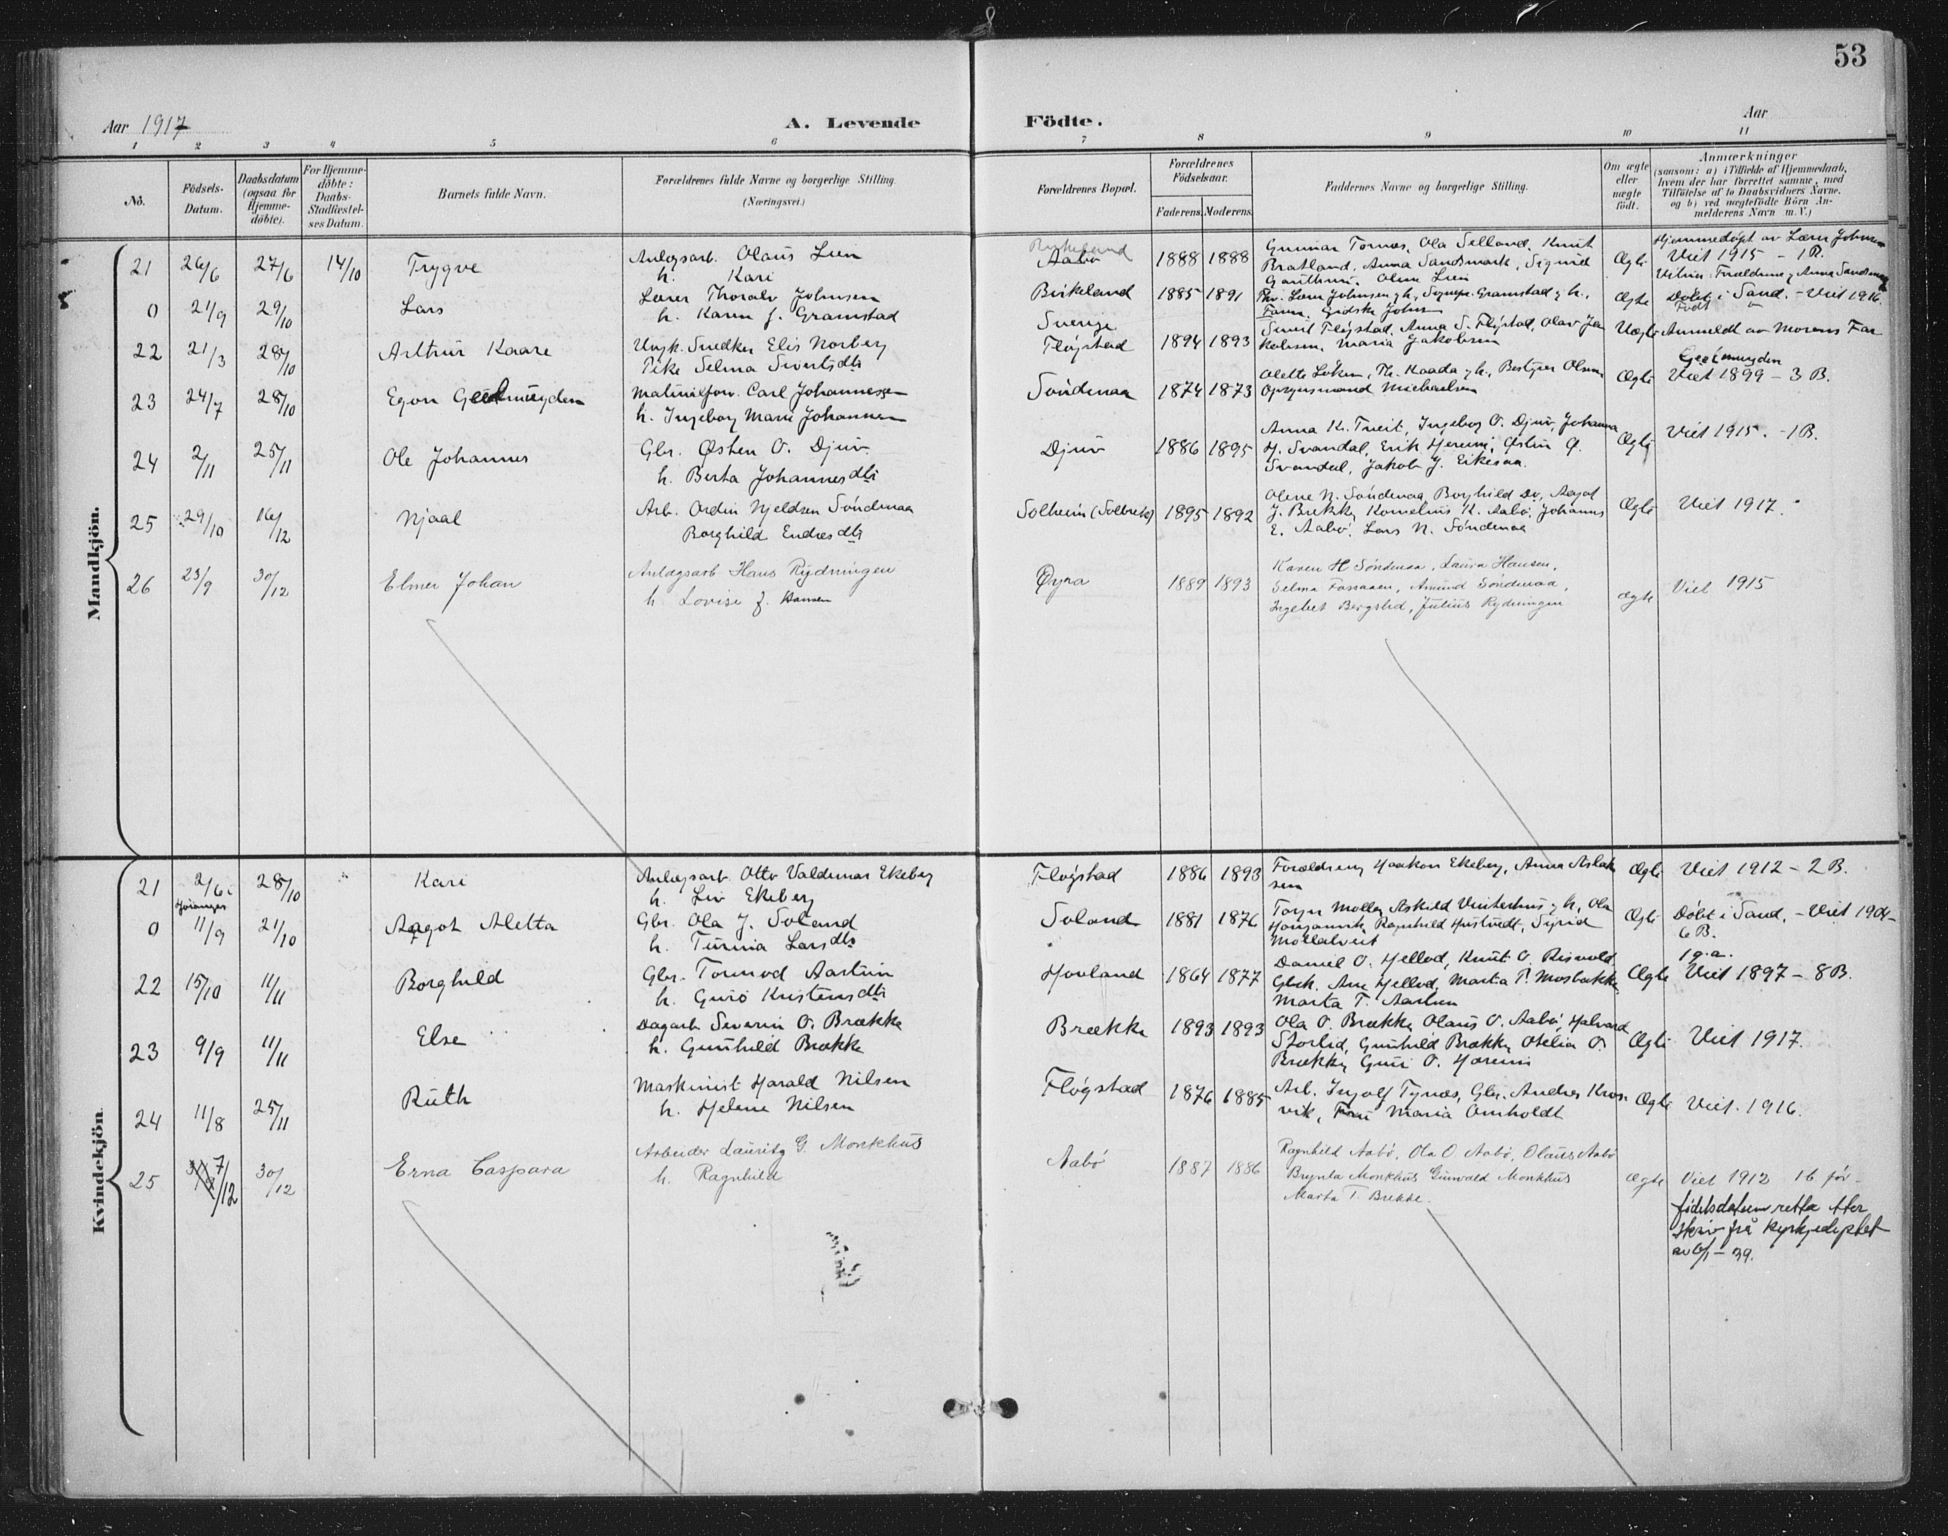 53
Aar 1917
A. Levende
Födte.
Aar
1 2 3 4 5 6 7 8 9 10 11
No.
Födsels-
Datum.
Daabsdatum
(ogsaa for
Hjemme-
döbte).
For Hjemme-
döbte:
Daabs-
Stadfæstel-
ses Datum.
Barnets fulde Navn.
Forældrenes fulde Navne og borgerlige Stilling.
(Næringsvei.)
Forældrenes Bopæl.
Forældrenes
Födselsaar.
Faderens. Moderens.
Faddernes Navne og borgerlige Stilling.
Om ægte
eller
uægte
födt.
Anmærkninger
(saasom: a) i Tilfælde af Hjemmedaab,
hvem der har forrettet samme, med
Tilföielse af to Daabsvidners Navne,
og b) ved uægtefödte Börn An-
melderens Navn m. V.)
Mandkjön.
21 26/6 27/6 14/10 Trygve
Anlægsarb. Olaus Lien
h. Kari
Aabø 1888 1888
Gunnar Tornes, Ola Selland, Knut
Bratland, Anna Sandsmark, Sigrid
Oline Lien
Ægte
Hjemmedøpt av Lærer Johnsen
Viet 1915 - 1 B.
0 21/9 29/10 Lars
Lærer Thoralv Johnsen
h. Karen f. Gramstad
Birkeland 1885 1891
Ægte
Døbt i Sand. - Viet 1916.
Født
22 21/3 28/10 Arthur Kaare
Ungk. Snedker Elis Norberg
Pike Selma Sivertsdtr
Sverige
Fløgstad 1894 1893
Sivert Fløgstad, Anna S. Fløgstad, Olav Ja-
kobsen, Maria Jakobsen
Uægte Anmeldt av Morens Far
23 24/7 28/10 Egon Geelmuyden
Materialforv. Carl Johannessen
h. Ingeborg Marie Johannesen
Søndenaa 1874 1873
Olette Løken, Th. Kaada g h., Bestyrer Olsen,
Opsynsmand Michaelsen
Ægte
Geelmuyden
Viet 1899 - 3 B.
24 2/11 25/11 Ole Johannes
Gbr. Østen O. Djuv
h. Berta Johannesdtr
Djuv 1886 1895
Anna K. Tveit, Ingeborg O. Djuv, Johanna
H. Svandal, Erik Hereim, Østen Ø.
Svandal, Jakob J. Eikesaa.
Ægte Viet 1915. - 1 B.
25 29/10 16/12 Njaal
Arb. Ordin Njeldsen Søndenaa
Borghild Endresdtr
Solheim (Solbrekk) 1895 1892
Olene N. Søndenaa, Borghild Do, Aagot
J. Brekke, Kornelius K. Aabø, Johannes
E. Aabø, Lars N. Søndenaa
Ægte Viet 1917.
26 23/9 30/12 Elmer Johan
Anlægsarb Hans Rydningen
h. Lovise f. Hansen
Øyra 1889 1893
Karen H Søndenaa, Laura Hansen,
Selma Fossaaen, Amund Søndenaa,
Ingebret Bergslid, Julius Rydningen
Ægte Viet 1915
Kvindekjön
21 2/6 i 28/10 Kari
Høianger
Anlægsarb. Otto Valdemar Ekeberg
h. Liv Ekeberg
Fløgstad 1886 1893
Forældrene, Haakon Ekeberg, Anna Aslak-
sen
Ægte Viet 1912 - 2 B.
0 11/9 21/10 Aagot Aletta
Gbr. Ola J. Soland
h. Turina Larsdtr
Soland 1881 1876
Ragnhild Hustvedt, Sigrid
Ægte Døbt i Sand. - Viet 1901-
6 B.
22 15/10 11/11 Borghild
Gbr. Tormod Aartun
h. Guro Kristensdtr
Hovland 1864 1877
Daniel O. Hjellod, Knut O. Risvold,
Gbrk. Ane Hjellod, Marta T. Mosbakke,
Marta T. Aartun
Ægte
1 g. a.
Viet 1897 - 8 B.
23 9/9 11/11 Else
Dagarb. Severin O. Brække
h. Gunhild Brække
Brække 1893 1893
Ola O. Brække, Olaus O. Aabø, Halvard
Storlid, Gunhild Brække, Otelia O.
Brække, Guri O. Hereim
Ægte Viet 1917.
24 11/8 25/11 Ruth
Maskinist Harald Nilsen
h. Helene Nilsen
Fløgstad 1876 1885
Arb. Ingolf Tynæs, Gbr. Andres Kros-
vik, Frøu Maria Omholdt
Ægte Viet. 1916.
25 7/12 30/12 Erna Caspara
Arbeider Lauritz G. Monkhus
h. Ragnhild
Aabø 1887 1886
Ragnhild Aabø, Ola O Aabø, Olaus Aabø
Brynla Monkhus Gunvald Monkhus
Marta T. Brekke.
Ægte Viet 1912 1 b. før -
fødselsdatum retta etter
skriv frå kyrkjedeptet
av 6/1 - 39.